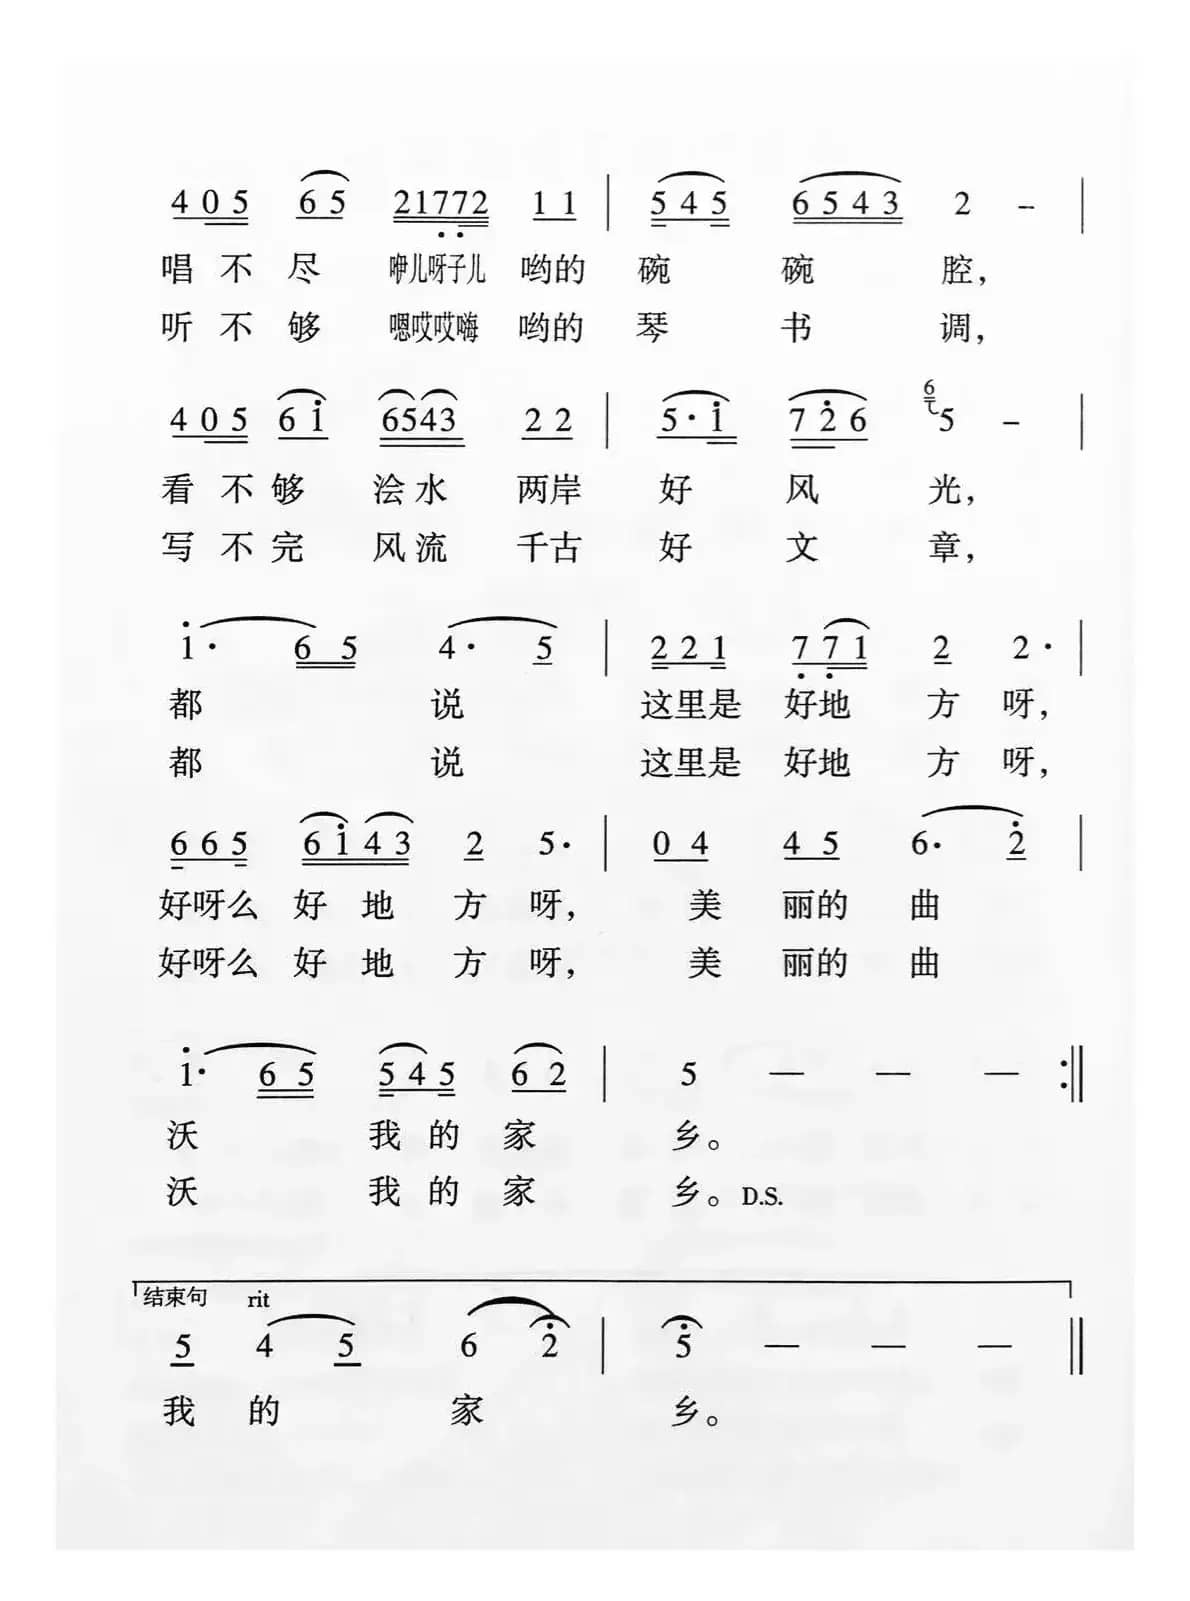 4 0 5 6 5 21772 1 1 | 5 4 5 6 5 4 3 2 - |
唱 不 尽 咿儿呀子儿 哟的 碗 碗 腔，
听 不 够 嗯哎哎嗨 哟的 琴 书 调，
4 0 5 6 i 6543 2 2 | 5· i 7 2 6 6 5 - |
看 不 够 浍 水 两岸 好 风 光，
写 不 完 风 流 千古 好 文 章，
i· 6 5 4· 5 | 2 2 1 7 7 1 2 2· |
都 说 这里是 好地 方 呀，
都 说 这里是 好地 方 呀，
6 6 5 6 i 4 3 2 5· | 0 4 4 5 6· 2 |
好呀么 好 地 方 呀， 美 丽的 曲
好呀么 好 地 方 呀， 美 丽的 曲
i· 6 5 5 4 5 6 2 | 5 — — — :||
沃 我 的 家 乡。
沃 我 的 家 乡。D.S.
结束句 rit
5 4 5 6 2 | 5 — — — ||
我 的 家 乡。